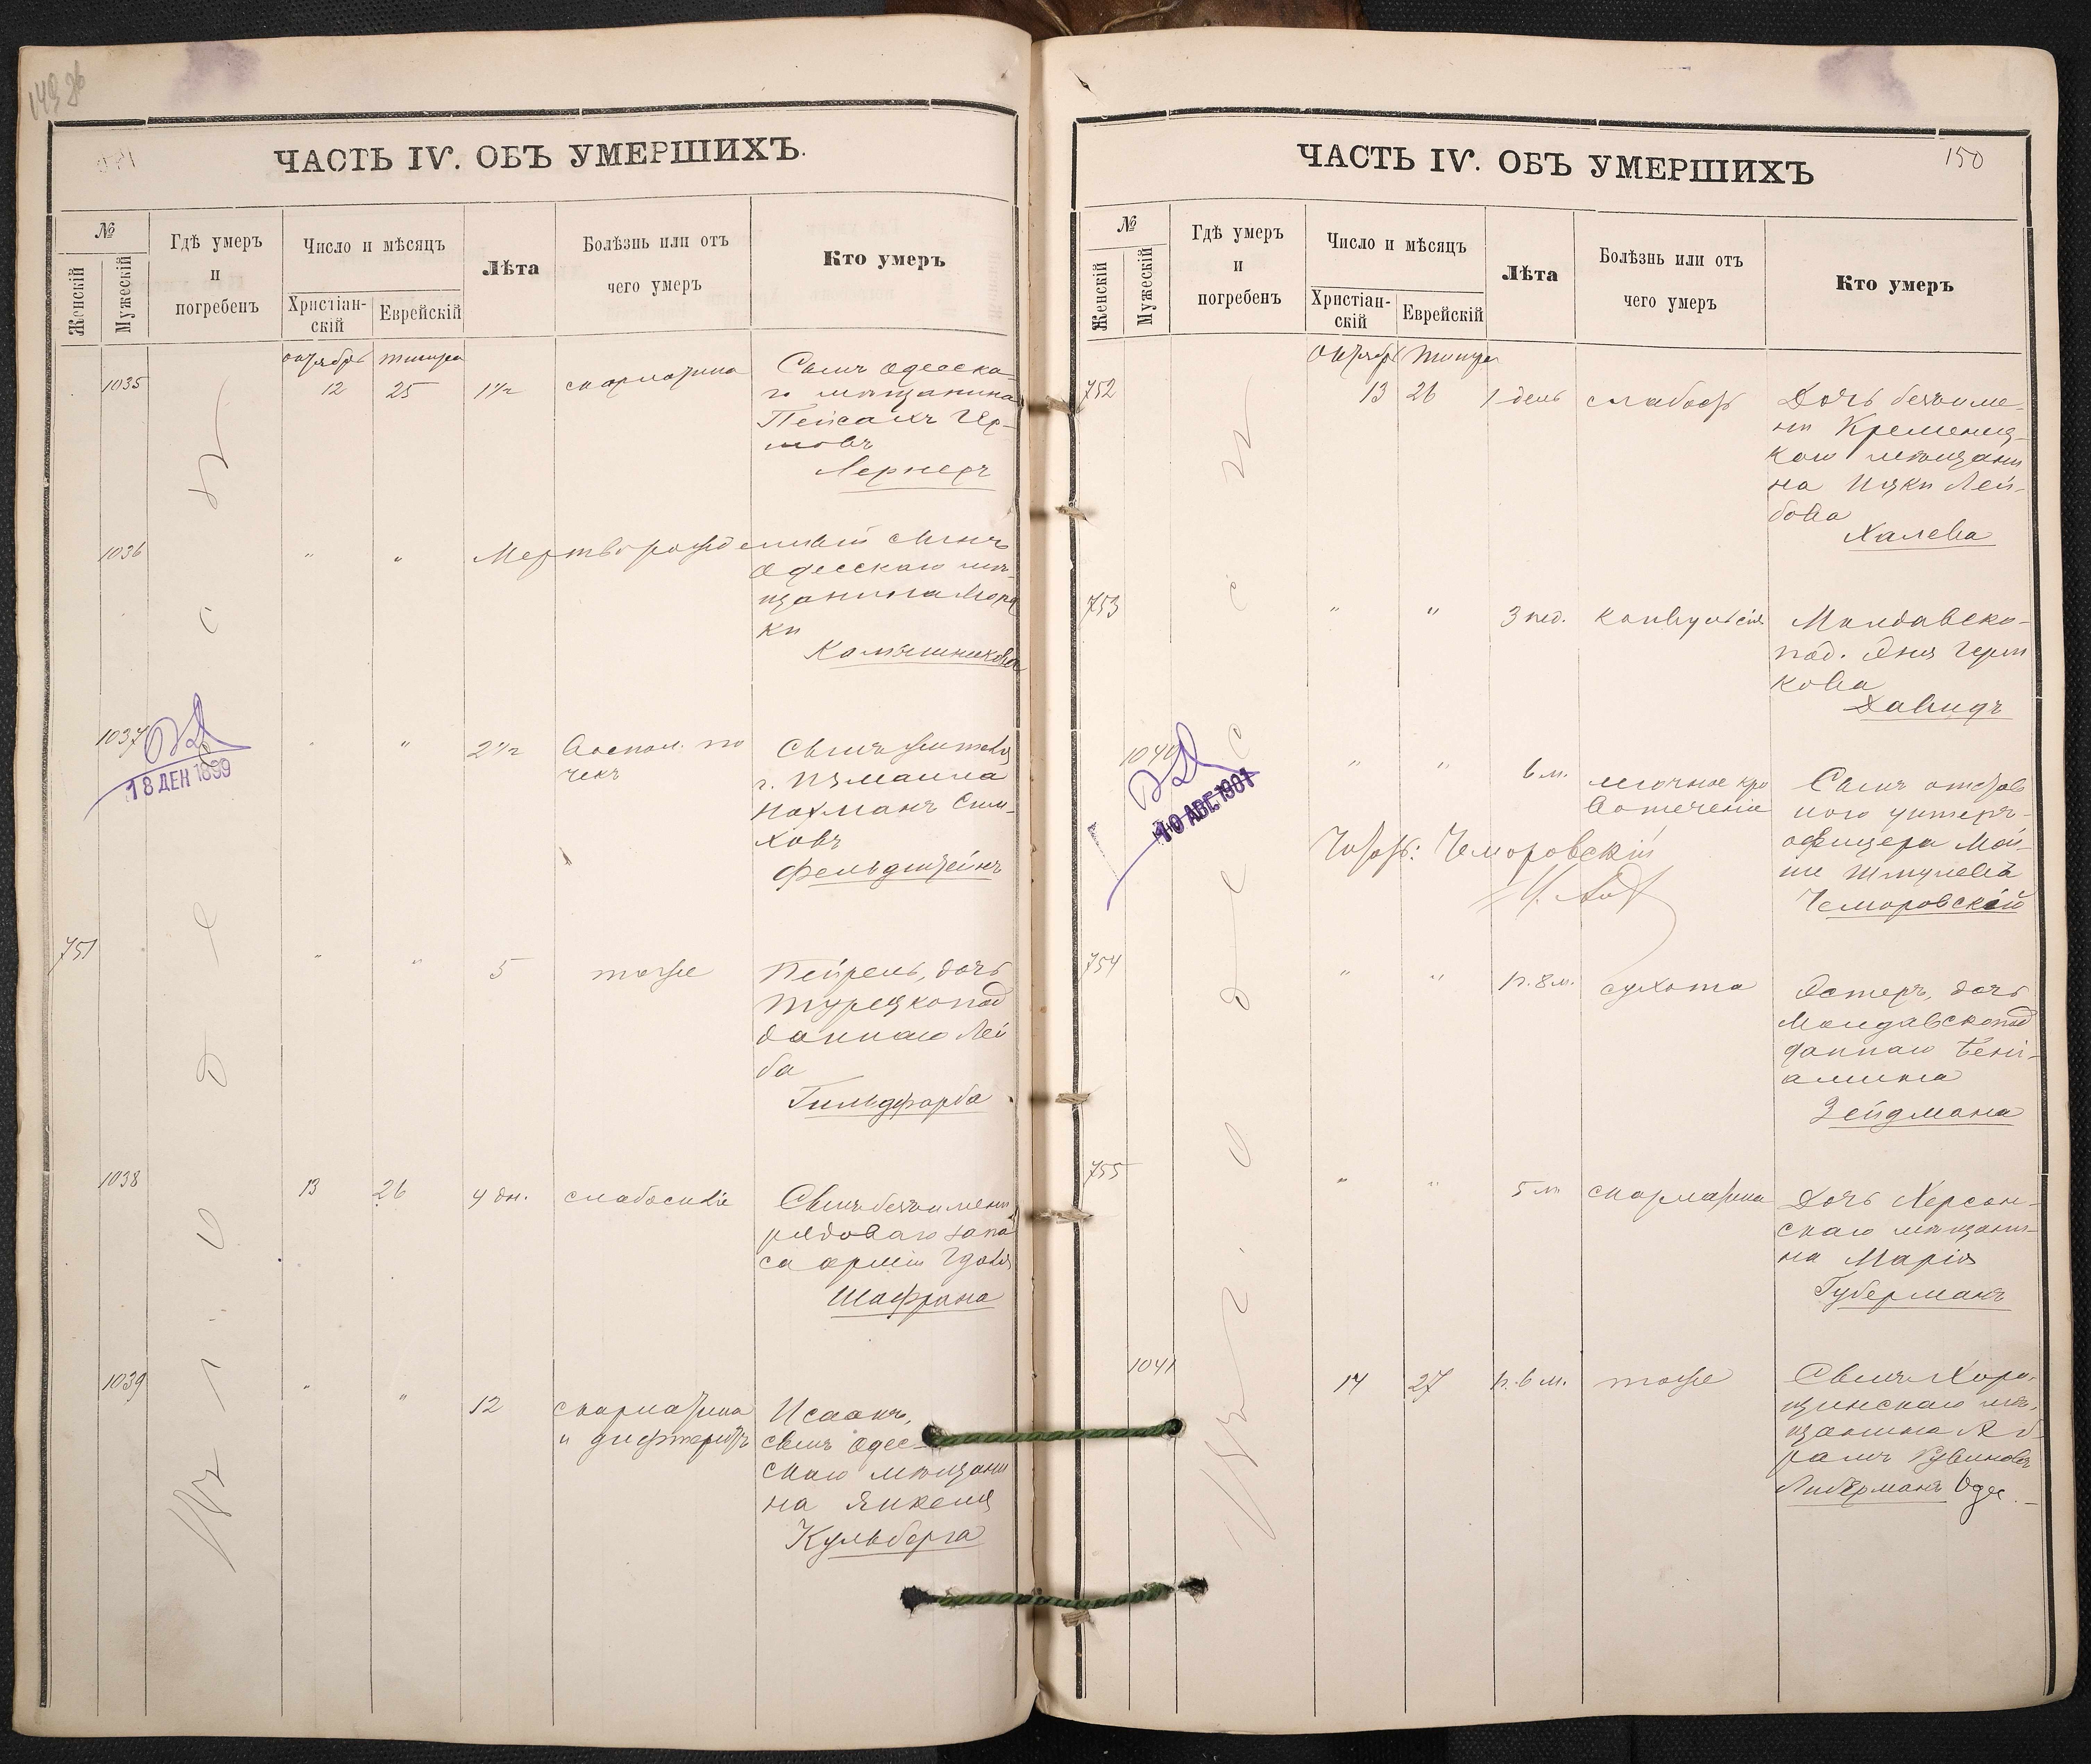 149 об
ЧАСТЬ IV. ОБЪ УМЕРШИХЪ.
№
Женскій
Мужескій
Гдѣ умеръ
и
погребенъ
Число и мѣсяцъ
Христіан-
скій
Еврейскій
Лѣта
Болѣзнь или отъ
чего умеръ
Кто умеръ
октябрь тишри
1035 12 25 1½ скарлатина Сынъ Одесска-
го мѣщанина
Пейсахъ
Лернеръ
1036 " " Мертворожденный сынъ
Одесскаго мѣ-
щанина Морд
ки
1037 " " 2½ Воспал. по
чекъ
Сынъ жителя
г. Измаила
Нахманъ Сим-
ховъ
Фельдштейнъ
18 ДЕК 1899
751 " " 5 тоже Пейрель, дочь
Турецкопод
даннаго Лей
ба
Гильдфарба
1038 13 26 4 дн. слабосиліе Сынъ безъ имени
рядоваго запа
са арміи
Шафрана
1039 " " 12 скарлатина
и дифтеритъ
Исаакъ,
сынъ Одес-
скаго мѣщани
на Янкеля
Кульберга
въ г. Одессѣ
ЧАСТЬ IV. ОБЪ УМЕРШИХЪ
150
№
Женскій
Мужескій
Гдѣ умеръ
и
погребенъ
Число и мѣсяцъ
Христіан-
скій
Еврейскій
Лѣта
Болѣзнь или отъ
чего умеръ
Кто умеръ
октябрь тишри
752 13 26 1 день слабость Дочь безъ име-
ни Кременец-
каго мѣщани
на Ицки Лей-
бова
Халева
753 " " 3 нед. конвульсія Молдавско-
под. Герш
кова
Давидъ
1040 " " 6 м. мѣщаное кро
вотеченіе
Сынъ отстав
ного унтеръ-
офицера Мой-
ше Шмулева
Чеморовскій
10 АВГ. 1901
Чеморовскій
754 " " 1 г. 8 м. сухота Эстеръ, дочь
Молдавскопод
даннаго Бені-
амина
Зейдмана
755 " " 5 м. скарлатина Дочь Херсон-
скаго мѣщани-
на Марія
Губерманъ
1041 14 27 1 г. 6 м. тоже Сынъ Хоро-
щинскаго мѣ-
щанина Аб-
рамъ Рувиновъ
Либерманъ Одес.
въ г. Одессѣ